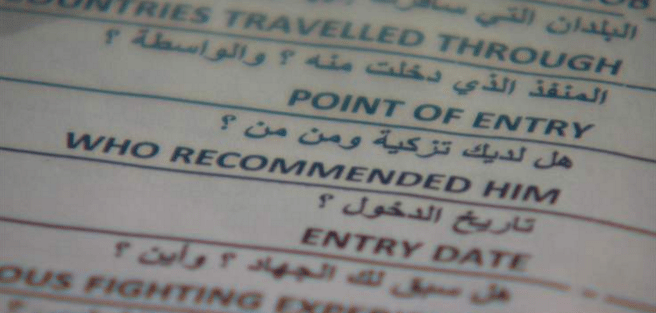 البلدان التي
COUNTRIES TRAVELLED THROUGH
المنفذ الذي دخلت منه ؟ والواسطة ؟
POINT OF ENTRY
هل لديك تزكية ومن من ؟
WHO RECOMMENDED HIM
تاريخ الدخول ؟
ENTRY DATE
هل سبق لك الجهاد ؟ وأين ؟
OUS FIGHTING